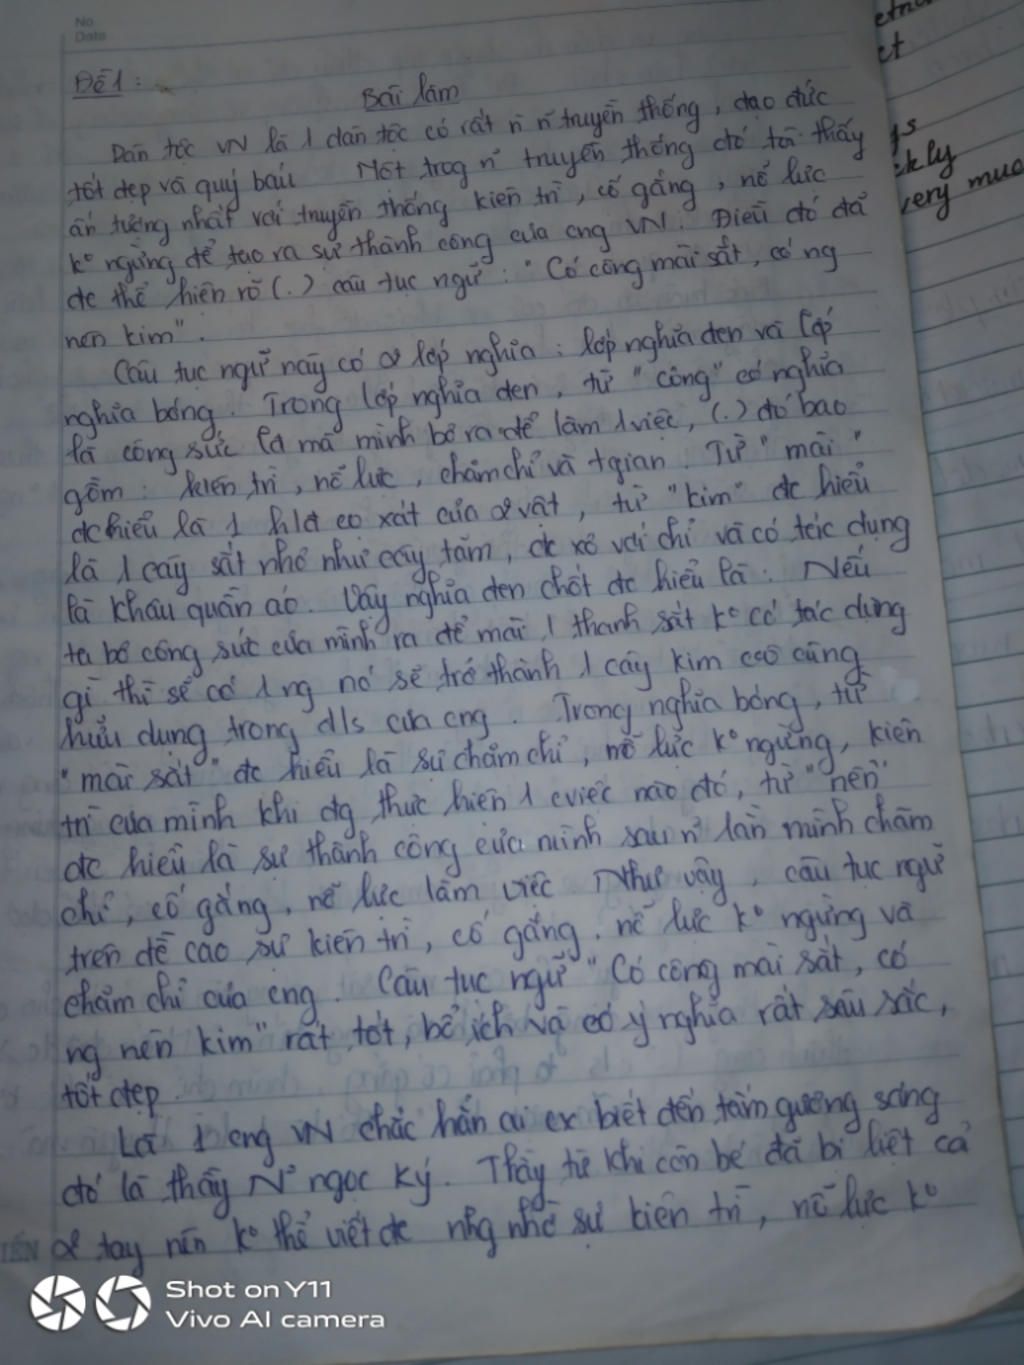 No
Date
Đề 1 :
Bài làm
Dân tộc VN là 1 dân tộc có rất n' n' truyền thống, đạo đức
tốt đẹp và quý báu Một trog n~ truyền thống đó tôi thấy
ấn tượng nhất với truyền thống kiên trì, cố gắng, nổ lực
k° ngừng để tạo ra sự thành công của cng VN. Điều đó đã
đc thể hiện rõ (.) câu tục ngữ : "Có công mài sắt, có ng
nên kim".
Câu tục ngữ này có 2 lớp nghĩa : lớp nghĩa đen và lớp
nghĩa bóng. Trong lớp nghĩa đen, từ "công" có nghĩa
là công sức là mà mình bỏ ra để làm 1 việc, (.) đó bao
gồm : kiên trì, nổ lực, chăm chỉ và tgian. Từ "mài"
đc hiểu là 1 hđ cọ xát của 2 vật, từ "kim" đc hiểu
là 1 cây sắt nhỏ như cây tăm, đc xỏ với chỉ và có tác dụng
là khâu quần áo. Vậy nghĩa đen chốt đc hiểu là : Nếu
ta bỏ công sức của mình ra để mài 1 thanh sắt k° có tác dụng
gì thì sẽ có 1 ng nó sẽ trở thành 1 cây kim cũng
hữu dụng trong đ/s của cng. Trong nghĩa bóng, từ
"mài sắt" đc hiểu là sự chăm chỉ, nổ lực k° ngừng, kiên
trì của mình khi đg thực hiện 1 cviệc nào đó, từ "nên"
đc hiểu là sự thành công của mình sau n~ lần mình chăm
chỉ, cố gắng, nỗ lực làm việc Như vậy, câu tục ngữ
trên đề cao sự kiên trì, cố gắng, nổ lực k° ngừng và
chăm chỉ của cng. Câu tục ngữ "Có công mài sắt, có
ng nên kim" rất tốt, bổ ích và có ý nghĩa rất sâu sắc,
tốt đẹp.
Là 1 cng VN chắc hẳn ai cx biết đến tấm gương sáng
đó là thầy N~ ngọc Ký. Thầy từ khi còn bé đã bị liệt cả
2 tay nên k° thể viết đc nhg nhờ sự kiên trì, nỗ lực k°
ct
ckly
very muc
Shot on Y11
Vivo AI camera